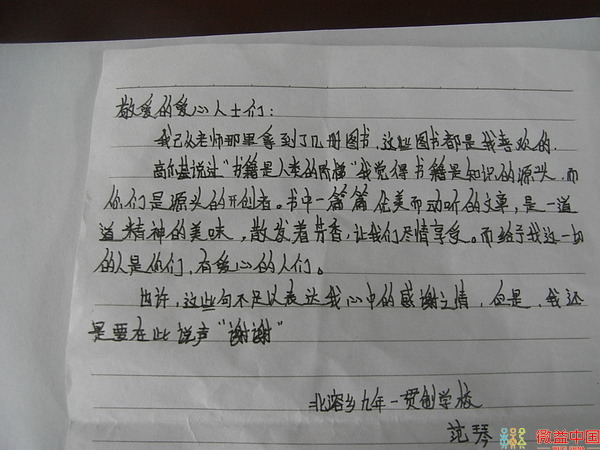 敬爱的爱心人士们:
我已从老师那里拿到了几册图书,这些图书都是我喜欢的.
高尔基说过"书籍是人类的阶梯"我觉得书籍是知识的源头,而
你们是源头的开创者。书中一篇篇优美而动听的文章,是一道
道精神的美味,散发着芳香,让我们尽情享受。而给予我这一切
的人是你们,有爱心的人们。
也许,这些句不足以表达我心中的感谢之情,但是,我还
是要在此说声"谢谢"
北溶乡九年一贯制学校
范琴
微益中国